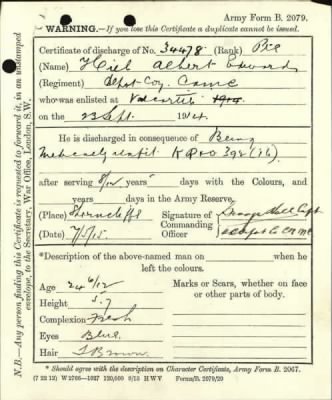 Army Form B. 2079.
WARNING.—If you lose this Certificate a duplicate cannot be issued.
Certificate of discharge of No. 34478 (Rank) Pte
(Name) Hiel Albert Edward
(Regiment) Depot Coy. CAMC
who was enlisted at Valcartier 1914
on the 23 Sept. 1914.
He is discharged in consequence of Being
Medically unfit KR&O 392 (16)
after serving 8/12 years days with the Colours, and
years days in the Army Reserve.
(Place) Shorncliffe Signature of
Commanding
(Date) 7/5/15 Officer
*Description of the above-named man on when he
left the colours.
Age 24 6/12
Height 5.7
Complexion Fresh
Eyes Blue.
Hair Brown
Marks or Scars, whether on face
or other parts of body.
* Should agree with the description on Character Certificate, Army Form B. 2067.
(7 22 12) W 2766—1027 120,000 9/13 H W V Forms/B. 2079/29
N.B.—Any person finding this Certificate is requested to forward it, in an unstamped
envelope, to the Secretary, War Office, London, S.W.